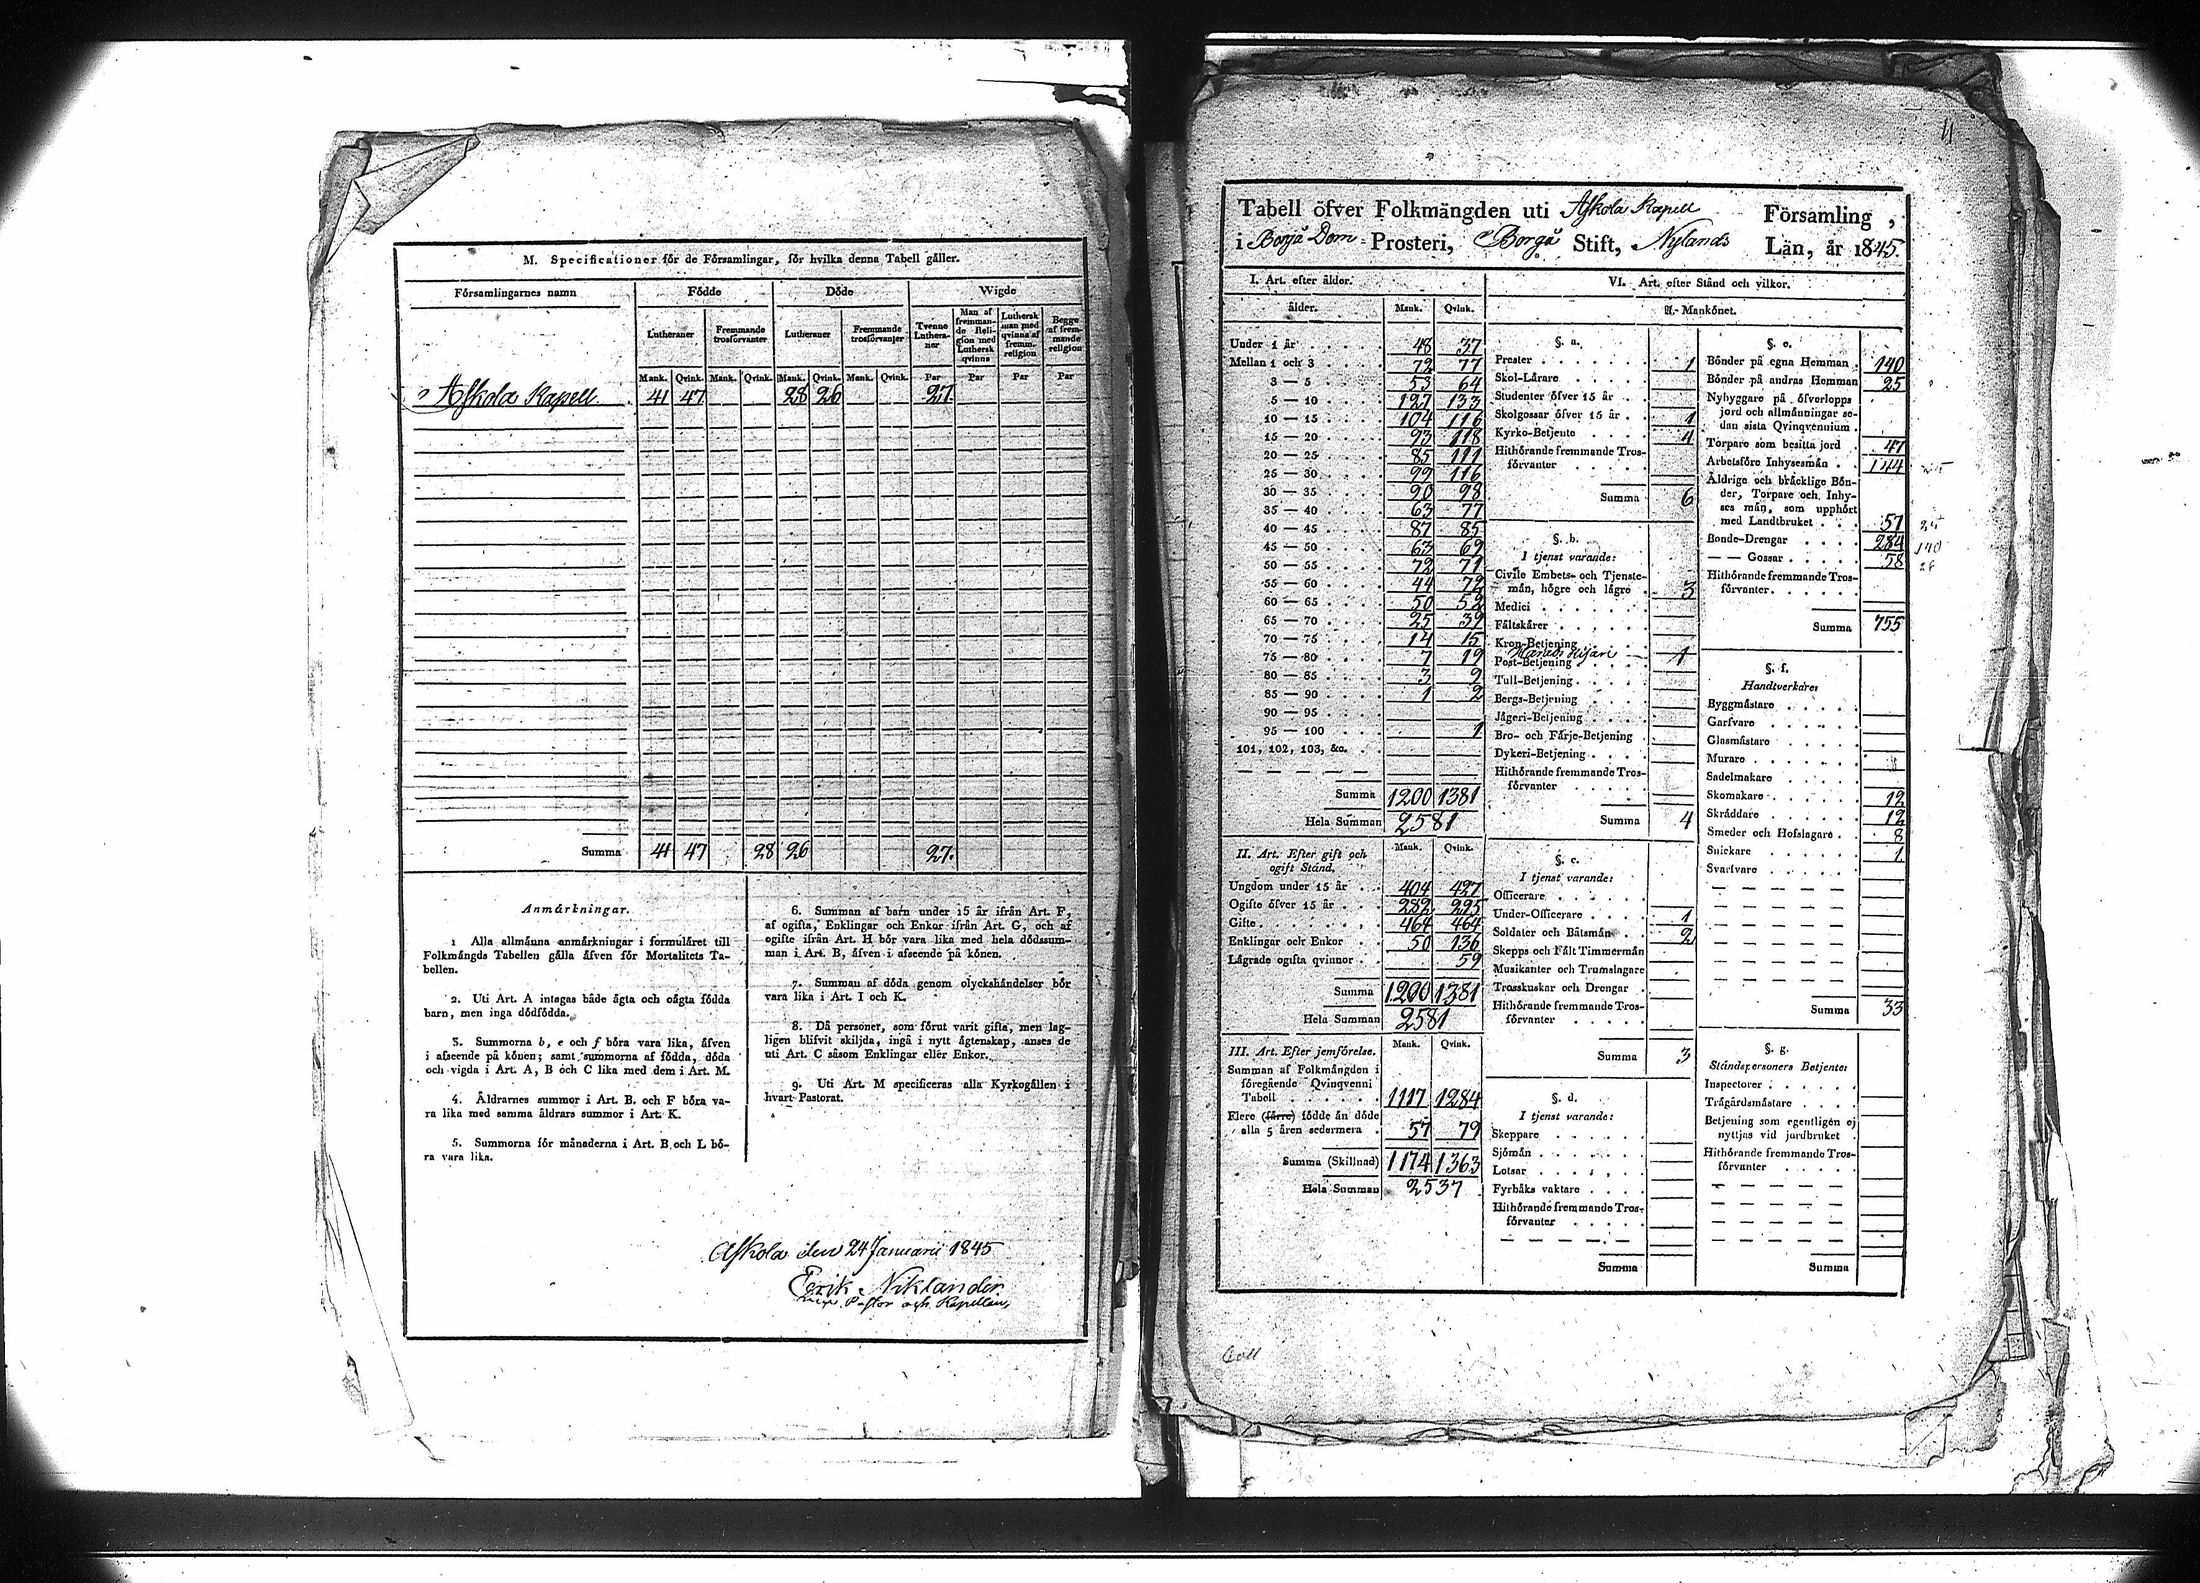 M. Specificationer för de Församlingar, för hvilka denna Tabell gäller.
Församlingarnes namn Födde Döde Wigde
Lutheraner Fremmande trosförvanter Lutheraner Fremmande trosförvanter Tvenne Lutheraner Man af fremmande Religion med Luthersk qvinna Luthersk man med qvinna af fremm. religion Begge af fremmande religion
Mank. Qvink. Mank. Qvink. Mank. Qvink. Mank. Qvink. Par Par Par Par
Askola Kapell 41 47 28 26 27.
Summa 41 47 28 26 27.
Anmärkningar.
1 Alla allmänna anmärkningar i formuläret till
Folkmängds Tabellen gälla äfven för Mortalitets Ta-
bellen.
2. Uti Art. A intagas både ägta och oägta födda
barn, men inga dödfödda.
3. Summorna b, e och f böra vara lika, äfven
i afseende på könen; samt summorna af födda, döda
och vigda i Art. A, B och C lika med dem i Art. M.
4. Åldrarnes summor i Art. B. och F böra va-
ra lika med samma åldrars summor i Art. K.
5. Summorna för månaderna i Art. B och L bö-
ra vara lika.
6. Summan af barn under 15 år ifrån Art. F,
af ogifta, Enklingar och Enkor ifrån Art. G, och af
ogifte ifrån Art. H bör vara lika med hela dödssum-
man i Art. B, äfven i afseende på könen.
7. Summan af döda genom olyckshändelser bör
vara lika i Art. I och K.
8. Då personer, som förut varit gifta, men lag-
ligen blifvit skiljda, ingå i nytt ägtenskap, anses de
uti Art. C såsom Enklingar eller Enkor.
9. Uti Art. M specificeras alla Kyrkogällen i
hvart Pastorat.
Askola den 24 Januarii 1845
Erik Niklander
Pastor och Kapellan
Tabell öfver Folkmängden uti Askola Kapell Församling,
i Borgå Dom- Prosteri, Borgå Stift, Nylands Län, år 1845.
I. Art. efter ålder.
ålder. Mank. Qvink.
Under 1 år 48 37
Mellan 1 och 3 72 77
3 — 5 53 64
5 — 10 127 133
10 — 15 104 116
15 — 20 93 118
20 — 25 85 111
25 — 30 99 116
30 — 35 90 98
35 — 40 63 77
40 — 45 87 85
45 — 50 63 69
50 — 55 72 71
55 — 60 44 72
60 — 65 50 52
65 — 70 25 39
70 — 75 14 15
75 — 80 7 19
80 — 85 3 9
85 — 90 1 2
90 — 95
95 — 100 1
101, 102, 103, &c.
Summa 1200 1381
Hela Summan 2581
II. Art. Efter gift och ogift Stånd. Mank. Qvink.
Ungdom under 15 år 404 427
Ogifte öfver 15 år 282 295
Gifte 464 464
Enklingar och Enkor 50 136
Lägrade ogifta qvinnor 59
Summa 1200 1381
Hela Summan 2581
III. Art. Efter jemförelse. Mank. Qvink.
Summan af Folkmängden i
föregående Qvinqvenni
Tabell 1117 1284
Flere (färre) födde än döde
alla 5 åren sedermera 57 79
Summa (Skillnad) 1174 1363
Hela Summan 2537
VI. Art. efter Stånd och vilkor.
A. Mankönet.
§. a.
Prester 1
Skol-Lärare
Studenter öfver 15 år
Skolgossar öfver 15 år 1
Kyrko-Betjente 4
Hithörande fremmande Tros-
förvanter
Summa 6
§. b.
I tjenst varande:
Civile Embets- och Tjenste-
män, högre och lägre 3
Medici
Fältskärer
Kron-Betjening
Post-Betjening 1
Tull-Betjening
Bergs-Betjening
Jägeri-Betjening
Bro- och Färje-Betjening
Dykeri-Betjening
Hithörande fremmande Tros-
förvanter
Summa 4
§. c.
I tjenst varande:
Officerare
Under-Officerare 1
Soldater och Båtsmän 2
Skepps och Fält Timmermän
Musikanter och Trumslagare
Trosskuskar och Drengar
Hithörande fremmande Tros-
förvanter
Summa 3
§. d.
I tjenst varande:
Skeppare
Sjömän
Lotsar
Fyrbåks vaktare
Hithörande fremmande Tros-
förvanter
Summa
§. e.
Bönder på egna Hemman 140
Bönder på andras Hemman 25
Nybyggare på öfverlopps
jord och allmänningar se-
dan sista Qvinqvennium
Torpare som besitta jord 47
Arbetsföre Inhysesmän 144
Åldrige och bräcklige Bön-
der, Torpare och Inhy-
ses män, som upphört
med Landtbruket 57
Bonde-Drengar 284
— — Gossar 58
Hithörande fremmande Tros-
förvanter
Summa 755
§. f.
Handtverkare:
Byggmästare
Garfvare
Glasmästare
Murare
Sadelmakare
Skomakare 12
Skräddare 12
Smeder och Hofslagare 8
Snickare 1
Svarfvare
Summa 33
§. g.
Ståndspersoners Betjente:
Inspectorer
Trägårdsmästare
Betjening som egentligen ej
nyttjas vid jordbruket
Hithörande fremmande Tros-
förvanter
Summa
140
Coll